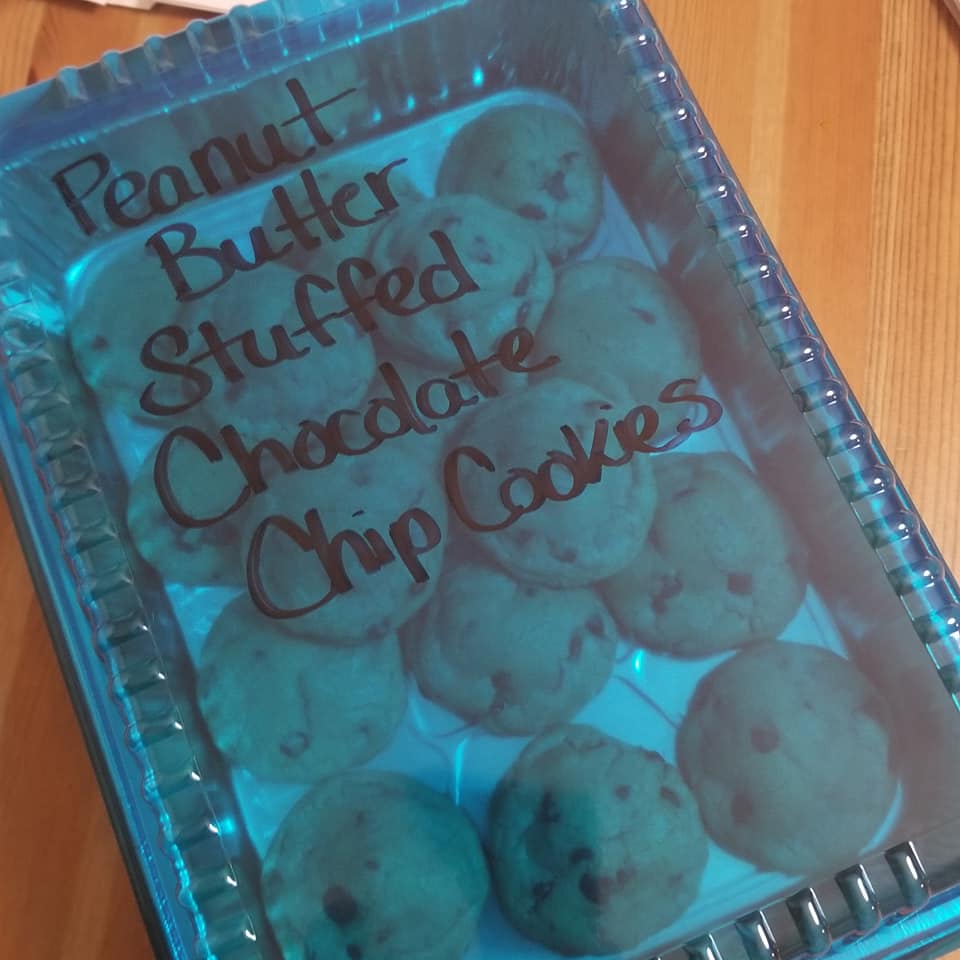 Peanut
Butter
Stuffed
Chocolate
Chip Cookies